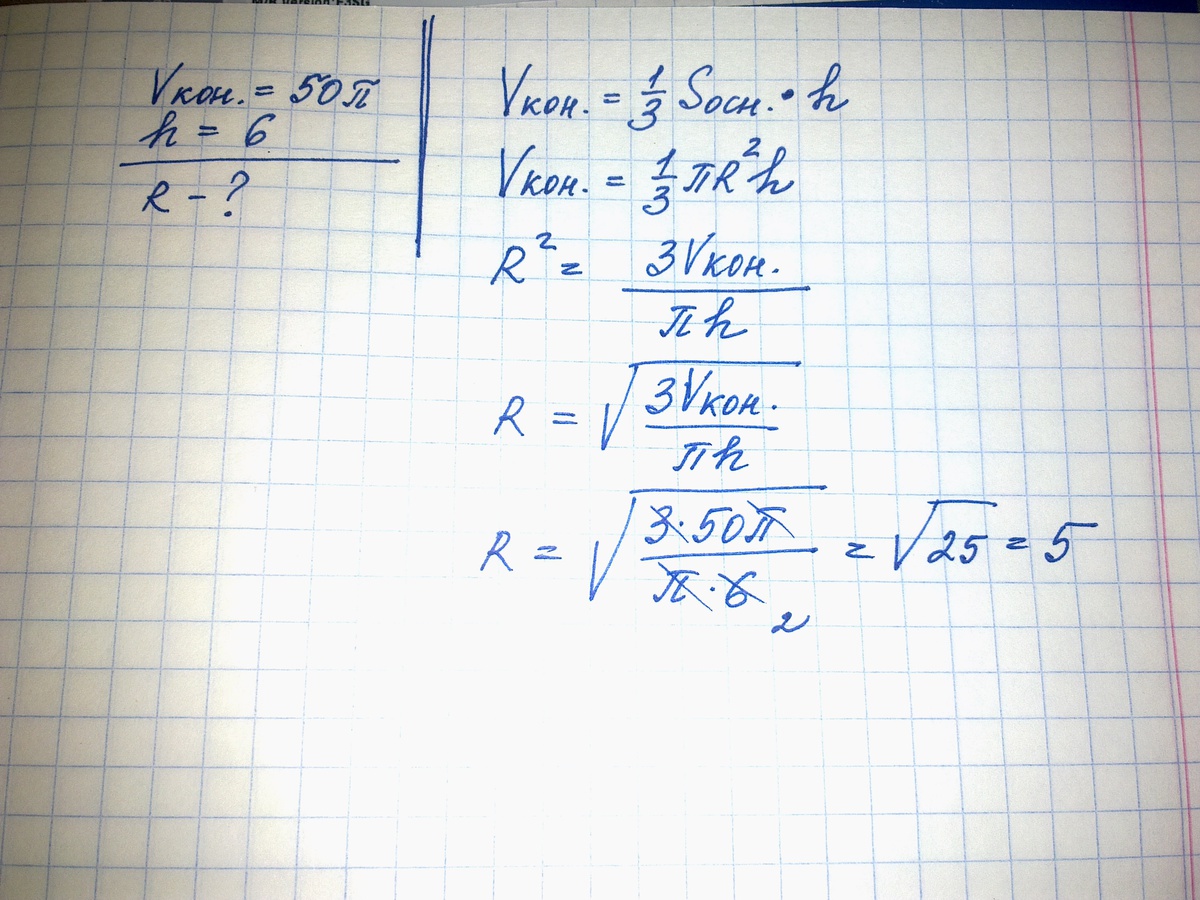 M/B Version:F3SG
Vкон. = 50π
h = 6
R - ?
Vкон. = 1/3 Sосн. · h
Vкон. = 1/3 πR²h
R² = 3Vкон. / πh
R = √(3Vкон. / πh)
R = √(3·50π / π·6 2) = √25 = 5